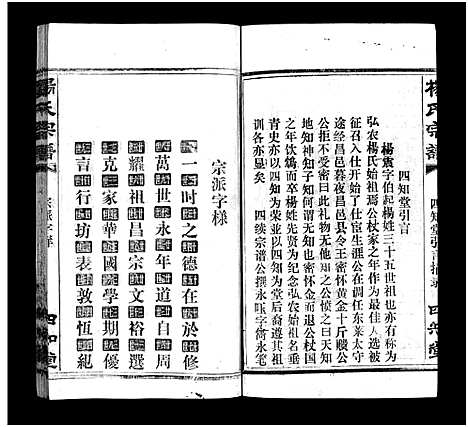 楊氏宗譜
四知堂引言
四知堂
四知堂引言
楊震字伯起楊姓三十五世祖也
弘农楊氏始祖焉公杖家之年作为最佳人选被
征召入仕开始了仕宦生涯公在调任东莱太守
途经昌邑暮夜昌邑县令王密怀黄金十斤赐公
公拒不受密曰此礼物无他知之公愤之曰天知
地知神知子知何谓无知也密怀金而退公杖国
之年饮鸩而卒楊姓先贤为纪念弘农始祖名垂
青史亦以四知为荣并以四知为堂后裔遵其祖
训各亦显矣
四续宗谱公撰永
笔
宗派字樣
一時之德在於修
萬世永年道自周
耀祖昌宗文裕選
克家華國學期優
言行坊表敦恆紀
楊氏宗譜
宗派字样
四知堂